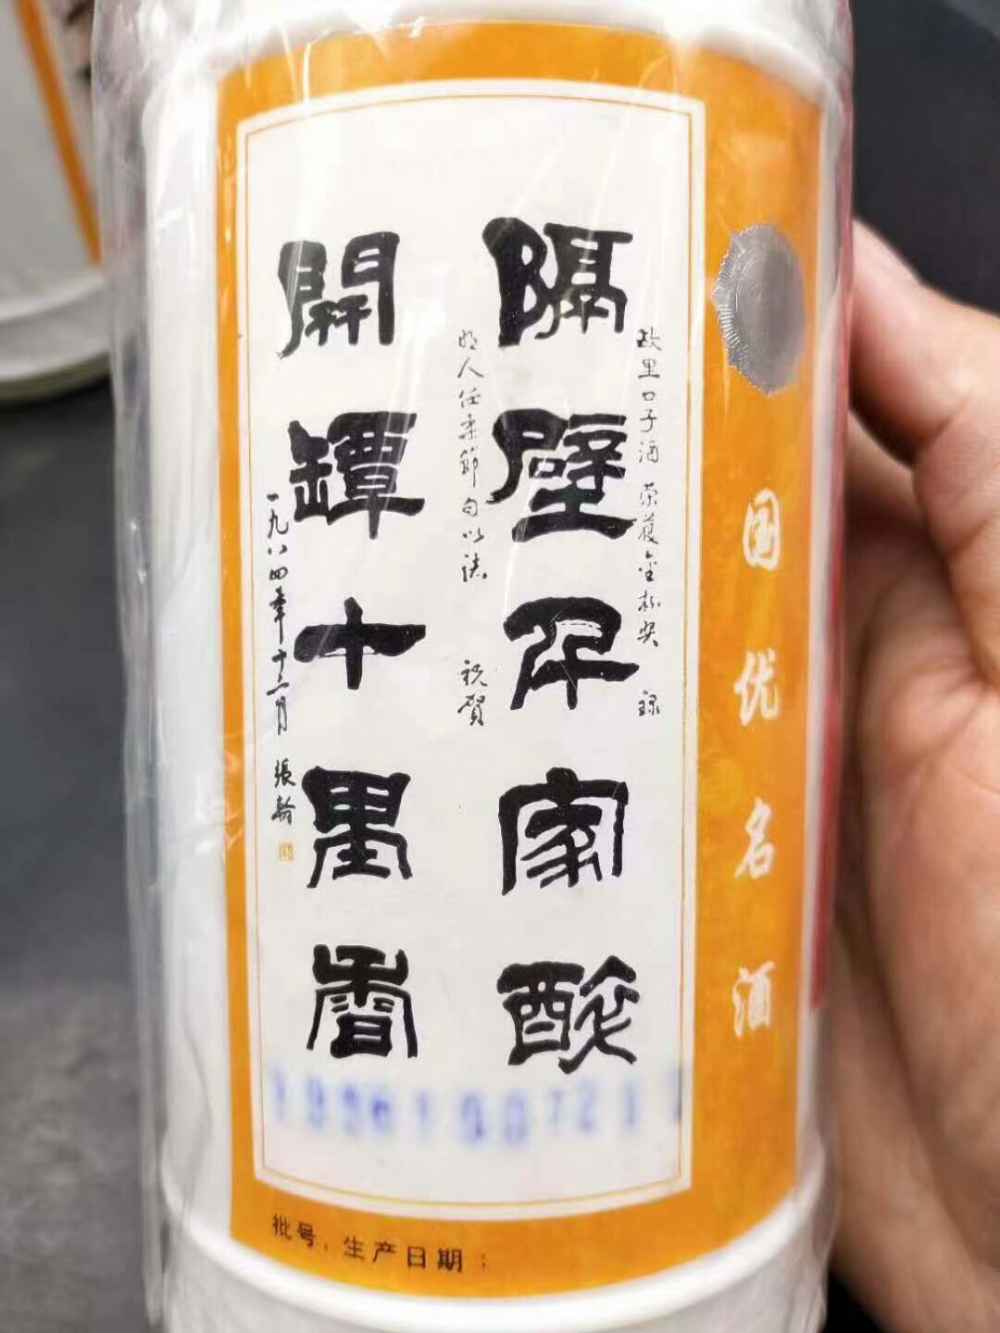 国优名酒
里口子酒 荣獲金杯奖 録
隔壁千家醉
人任柔節句以誌 祝賀
開罈十里香
一九八四年十二月 張翰
批号、生产日期：